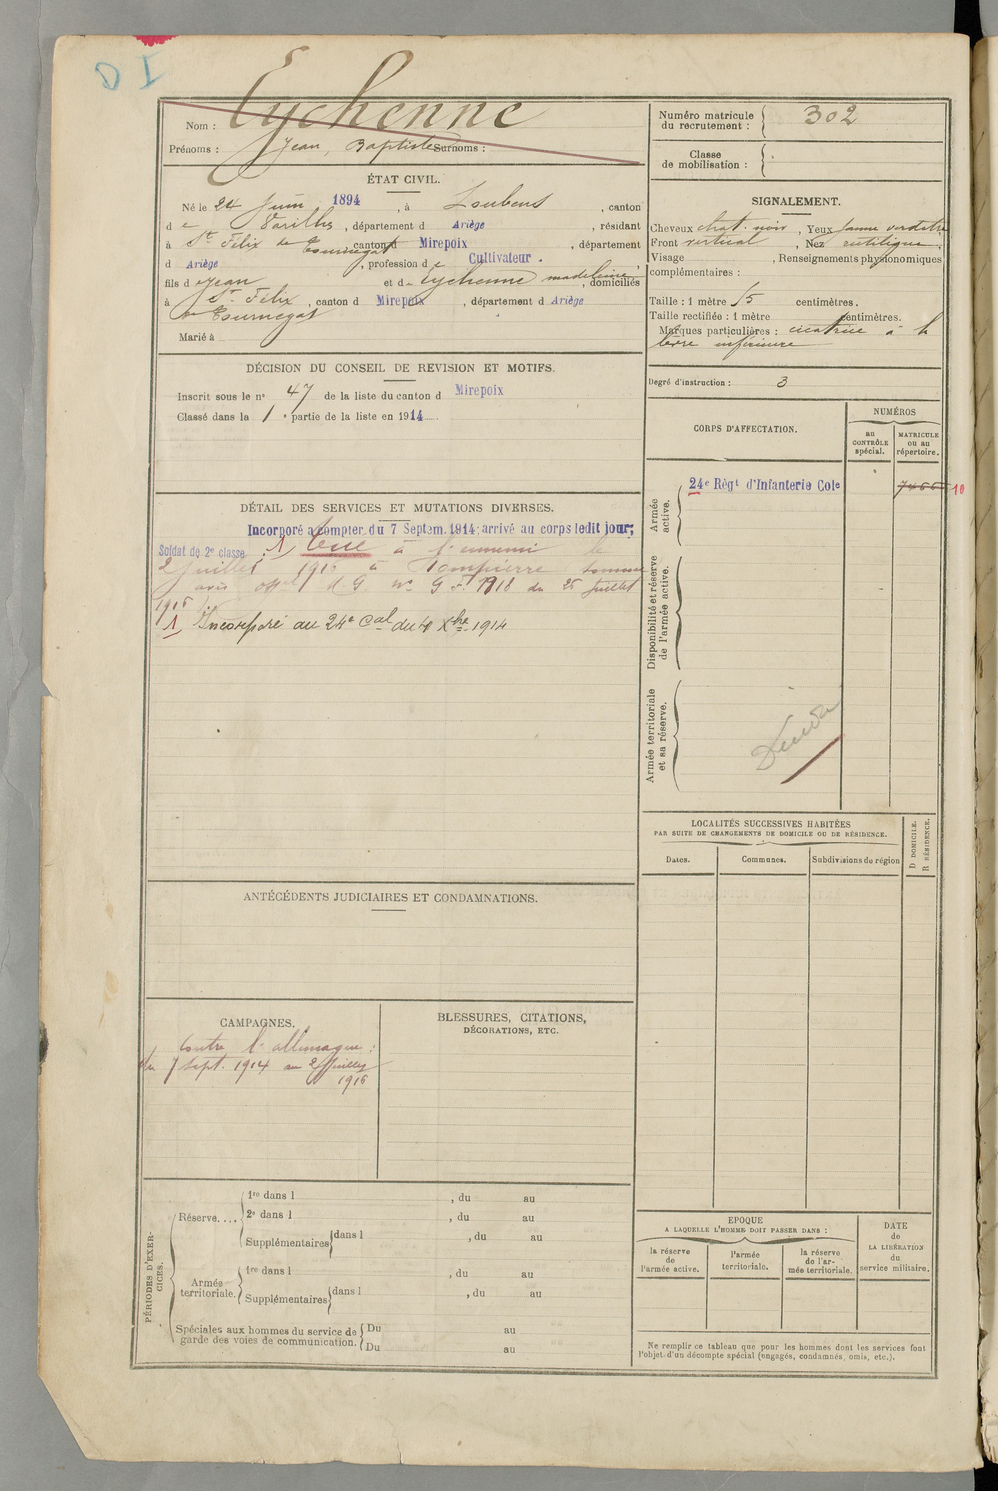 Nom : Eychenne
Prénoms : Jean, Baptiste Surnoms :
Numéro matricule du recrutement : 302
Classe de mobilisation :
ÉTAT CIVIL.
Né le 24 Juin 1894, à Loubens, canton
de Varilhes, département d Ariège, résidant
à St Félix de Tournegat, canton d Mirepoix, département
d Ariège, profession de Cultivateur.
fils d Jean et d Eychenne madeleine, domiciliés
à St Félix, canton d Mirepoix, département d Ariège
de Tournegat
Marié à
SIGNALEMENT.
Cheveux chat. noir, Yeux jaune verdatre
Front vertical, Nez rectiligne,
Visage , Renseignements physionomiques
complémentaires :
Taille : 1 mètre 75 centimètres.
Taille rectifiée : 1 mètre centimètres.
Marques particulières : cicatrice à la
lèvre inférieure
Degré d'instruction : 3
DÉCISION DU CONSEIL DE REVISION ET MOTIFS.
Inscrit sous le n° 47 de la liste du canton d Mirepoix
Classé dans la 1e partie de la liste en 1914
CORPS D'AFFECTATION.
NUMÉROS
au CONTRÔLE spécial.
MATRICULE ou au répertoire.
Armée active.
24e Régt d'Infanterie Cole
10
Disponibilité et réserve de l'armée active.
Armée territoriale et sa réserve.
DÉTAIL DES SERVICES ET MUTATIONS DIVERSES.
Incorporé à compter du 7 Septem. 1914, arrivé au corps ledit jour;
Soldat de 2e classe. 1) Tué à l'ennemi le
2 Juillet 1916 à Dompierre Somme
avis offel d G n° G 1918 du 25 Juillet
1916
1) Incorporé au 24e Cal du 4 Xbre 1914
LOCALITÉS SUCCESSIVES HABITÉES
PAR SUITE DE CHANGEMENTS DE DOMICILE OU DE RÉSIDENCE.
Dates.
Communes.
Subdivisions de région
D DOMICILE.
R RÉSIDENCE.
ANTÉCÉDENTS JUDICIAIRES ET CONDAMNATIONS.
CAMPAGNES.
Contre l'allemagne :
du 7 Sept. 1914 au 2 Juillet
1916
BLESSURES, CITATIONS,
DÉCORATIONS, ETC.
PÉRIODES D'EXERCICES.
Réserve....
1re dans l , du au
2e dans l , du au
Supplémentaires dans l , du au
Armée territoriale.
1re dans l , du au
Supplémentaires dans l , du au
Spéciales aux hommes du service de
garde des voies de communication.
Du au
Du au
EPOQUE
A LAQUELLE L'HOMME DOIT PASSER DANS :
la réserve de l'armée active.
l'armée territoriale.
la réserve de l'armée territoriale.
DATE de LA LIBÉRATION du service militaire.
Ne remplir ce tableau que pour les hommes dont les services font
l'objet d'un décompte spécial (engagés, condamnés, omis, etc.).